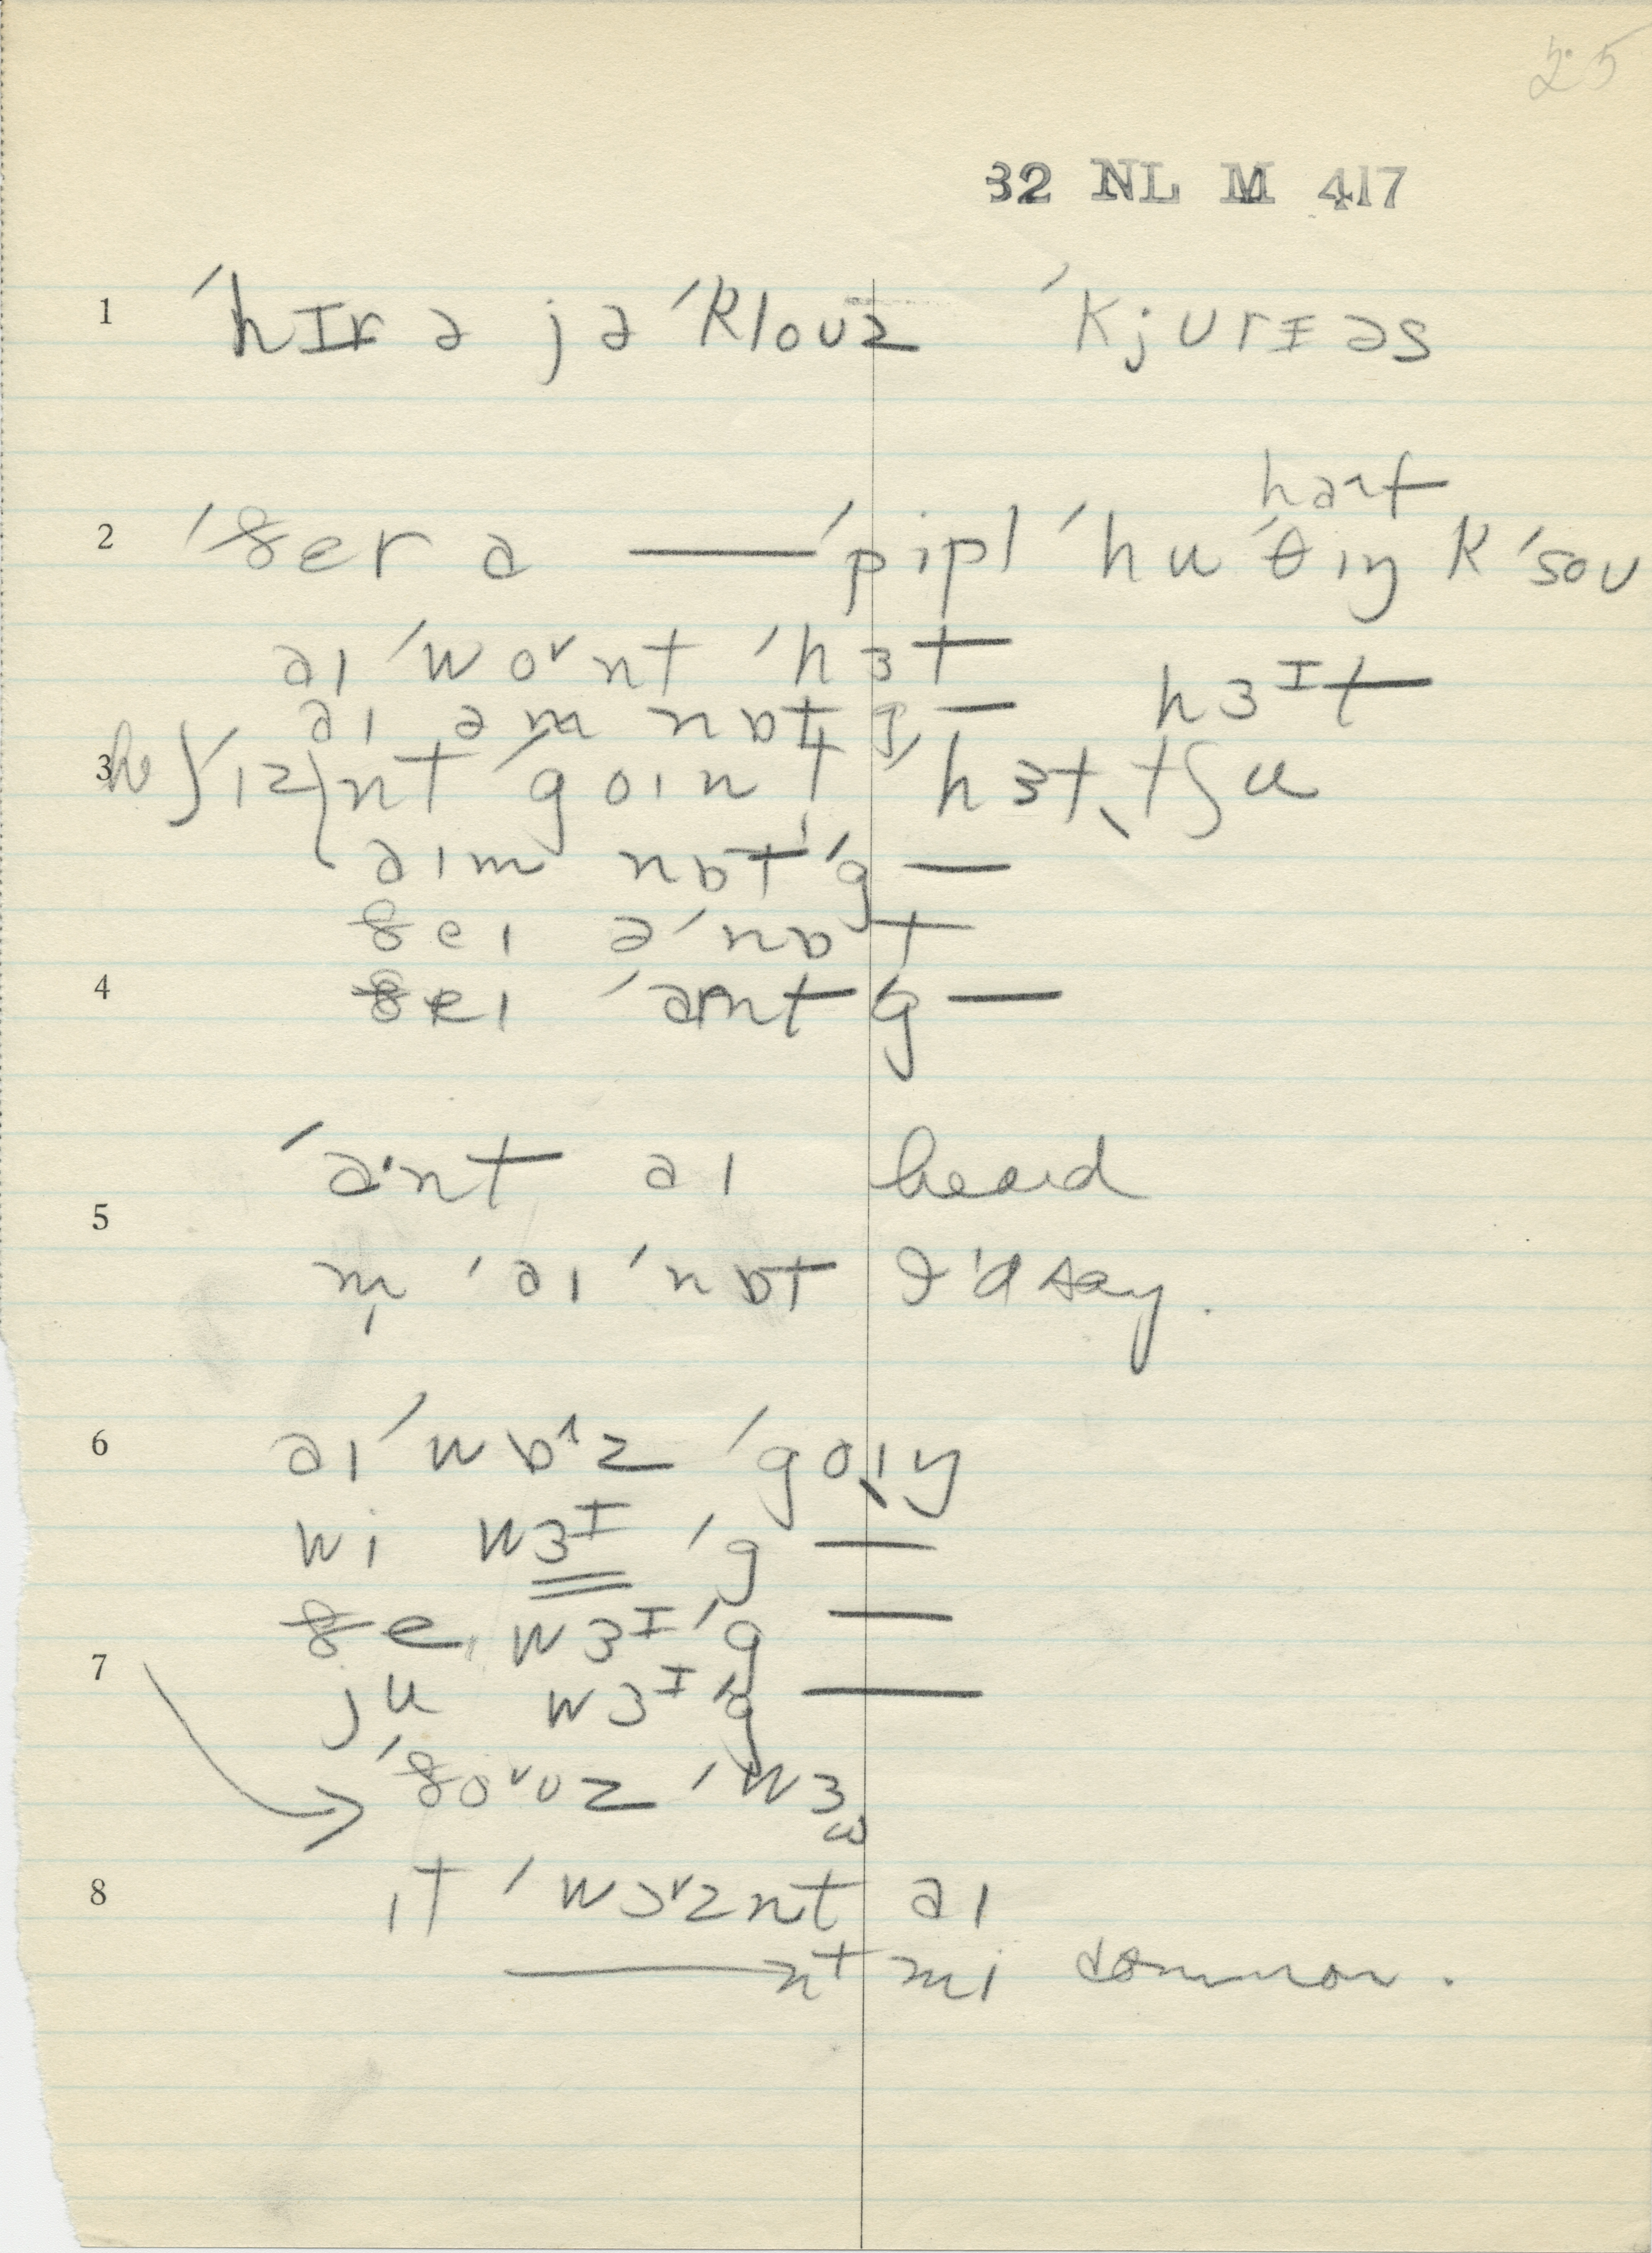 25
32 NL M 417
1 ˈhɪr ə jə ˈklouz ˈkjurɪəs
hart
2 ˈðer ə — ˈpipl ˈhu ˈθɪŋ k ˈsou
aɪ ˈwoᵛnt ˈhɜt
hɜᶦt
aɪ əm nɒt g —
3 he ˈɪznt ˈgoɪn t ˈhɜt tʃu
aɪm nɒt ˈg —
ðeɪ ə ˈnɒt
4 ðeɪ ˈɑrnt ˈg —
ˈɑ·nt aɪ heard
5
m̩ ˈaɪ ˈnɒt I'd say.
6 aɪ ˈwɒ^z ˈgoɪŋ
wi wɜᶦ ˈg —
ðe wɜᶦ ˈg —
7 ju wɜᶦ ˈg —
ˈðoᵛuz ˈwɜ
8 ɪt ˈwɔᵛznt aɪ
— nt mi common.